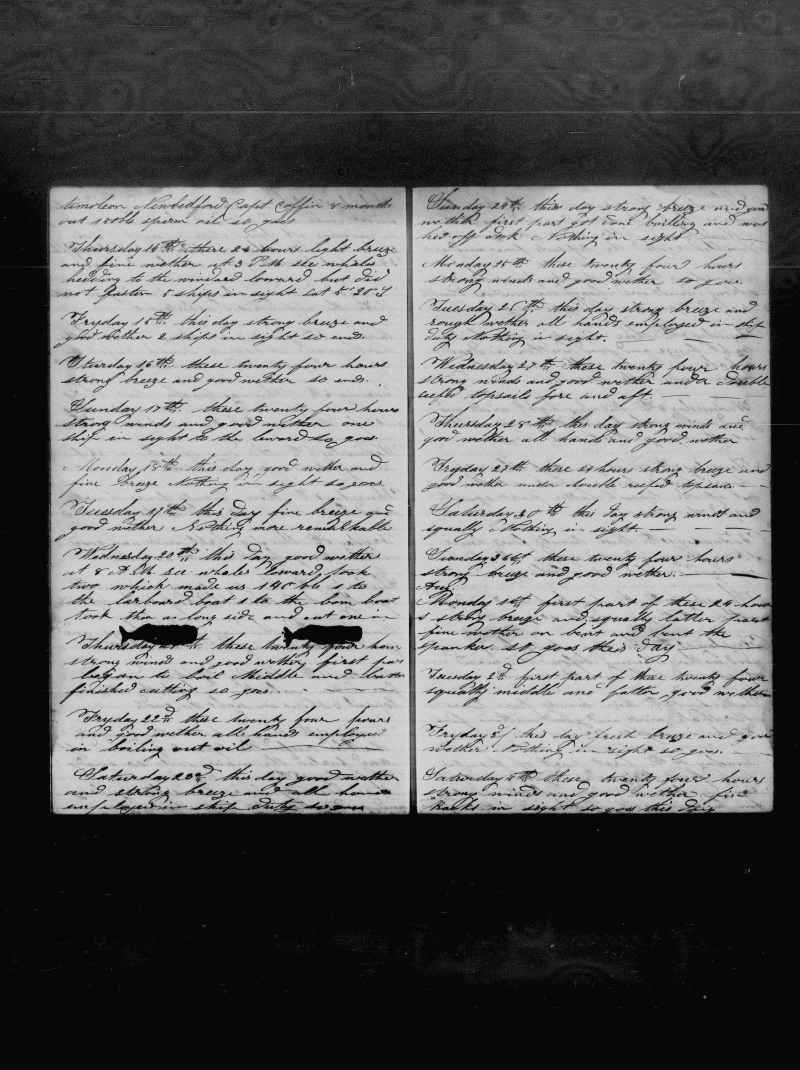 timoleon Newbedford Capt Coffin 8 months
out 150 bb sperm oil so goes
Thursday 14th these 24 hours light breeze
and fine wether at 3 P.M. see whales
heeding to the windard loward but did
not fasten 5 ships in sight Lat 5° 20 S
Fryday 15th this day strong breeze and
good wether 2 ships in sight so ends.
Sturday 16th these twenty four hours
strong breeze and good wether so ends.
Sunday 17th these twenty four hours
strong winds and good wether one
ship in sight to the leward so goes
Monday 18th this day good wether and
fine Breeze Nothing in sight so goes
Tuesday 19th this day fine breeze and
good wether Nothing more remarkable
Wednesday 20th this day good wether
at 8 A M see whales loward took
two which made us 140 bb
the larboard boat & to the bow boat
took them a long side and cut one in
Thursday 21th these twenty four hours
strong winds and good wether first part
began to boil Middle and latter
finished cutting so goes
Fryday 22d these twenty four hours
and good wether all hands employed
in boiling out oil
Saturday 23d this day good wether
and strong breeze and all hands
employed in ship duty so goes
Sunday 24th this day strong breeze and good
wether first part got done boilling and
hed off deck Nothing in sight
Monday 25th these twenty four hours
strong winds and good wether so goes.
Tuesday 26th this day strong breeze and
rough wether all hands employed in ship
duty Nothing in sight.
Wednesday 27th these twenty four hours
strong winds and good wether under double
reefed topsails fore and aft
Thursday 28th this day strong winds and
good wether all hands and good wether
Fryday 29th these 24 hours strong breeze and
good wether under double reefed topsails
Saturday 30th this day strong winds and
squally Nothing in sight.
Sunday 31st these twenty four hours
strong breeze and good wether.
Aug
Monday 1st first part of these 24 hours
strong breeze and squally latter part
fine wether on bent and bent the
spanker. so goes their day
Tuesday 2d first part of these twenty four
squally middle and latter good wether
Fryday 3/ this day fresh breeze and good
wether Nothing in sight so goes.
Saturday 4th these twenty four hours
strong winds and good wether fin
backs in sight so goes this day